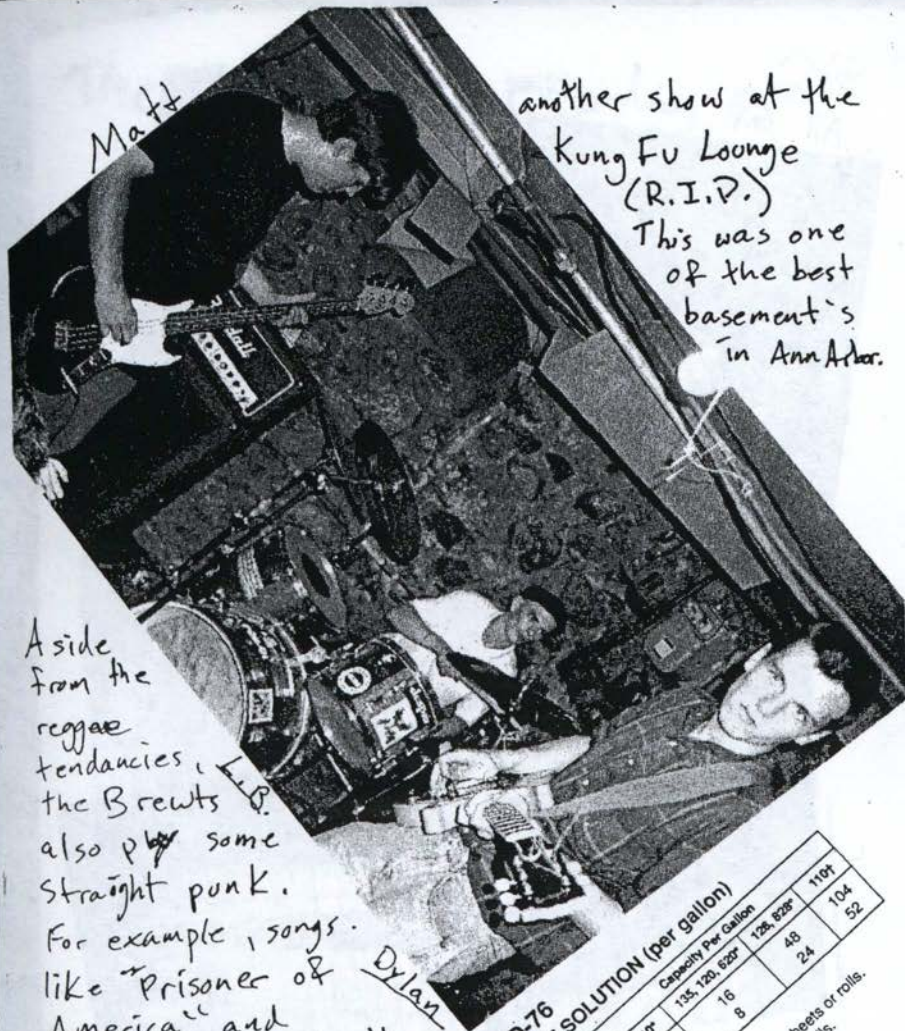 Matt
another show at the
Kung Fu Lounge
(R.I.P.)
This was one
of the best
basement's
in Ann Arbor.
Aside
from the
reggae
tendancies,
the Brewts
also play some
straight punk.
For example, songs
like "Prisoner of
America" and
Dylan
SOLUTION (per gallon)
Capacity Per Gallon
135, 120, 620*
128, 828*
110†
16
48
104
8
24
52
sheets or rolls.